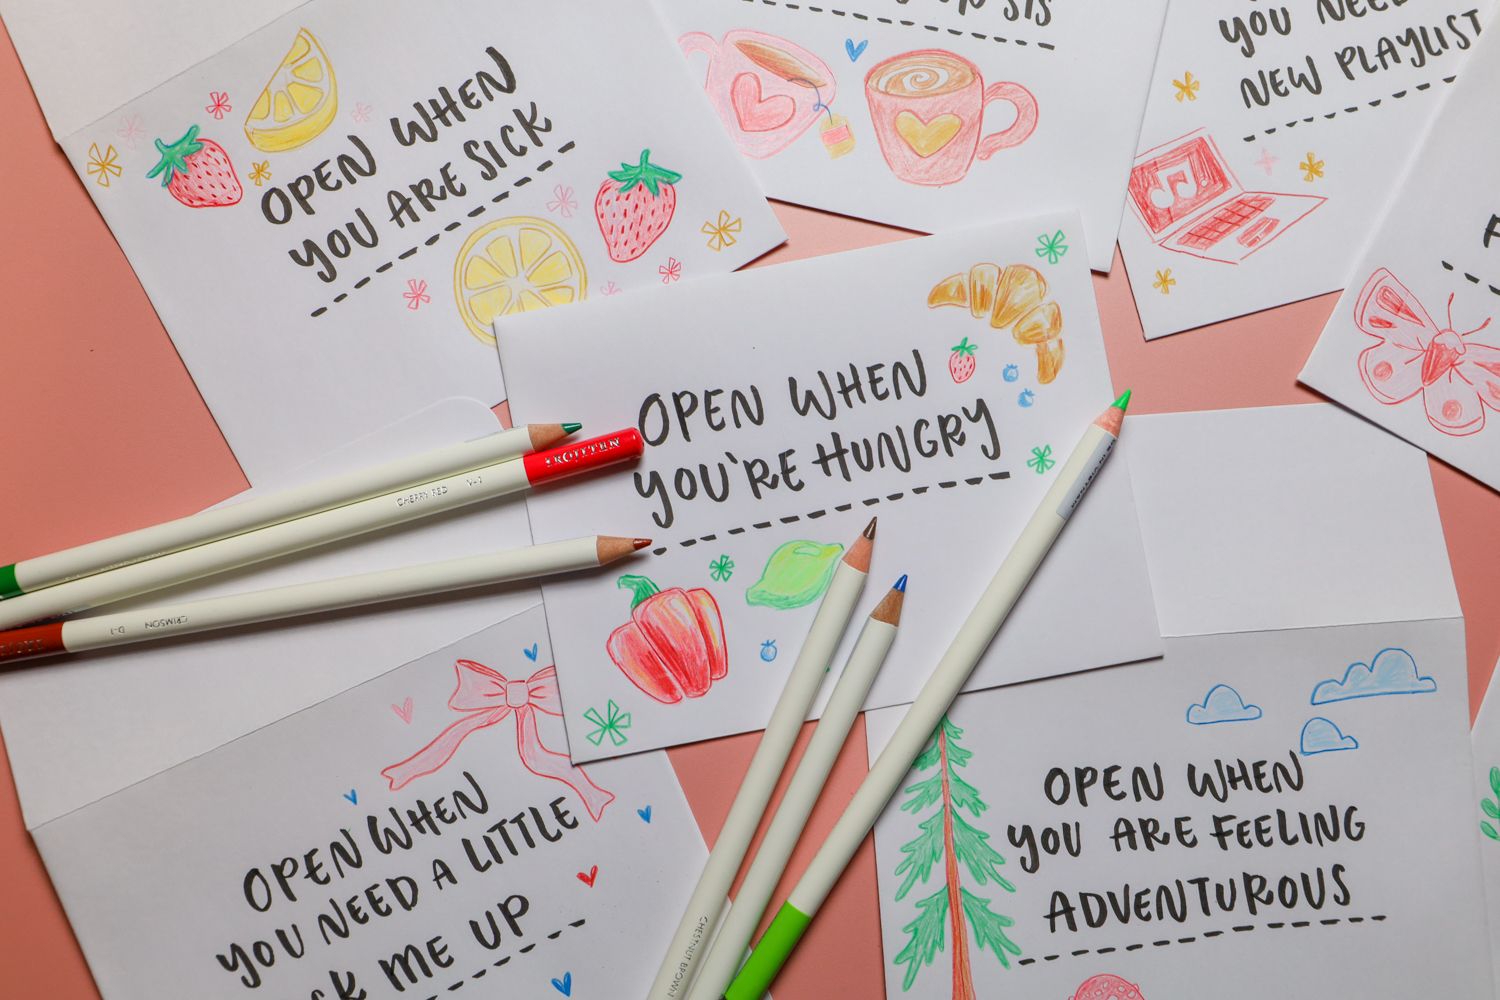 OPEN WHEN
YOU ARE SICK
SIS
YOU NEED
NEW PLAYLIST
OPEN WHEN
YOU'RE HUNGRY
CHERRY RED
CRIMSON
OPEN WHEN
YOU NEED A LITTLE
ME UP
CHESTNUT BROWN
OPEN WHEN
YOU ARE FEELING
ADVENTUROUS